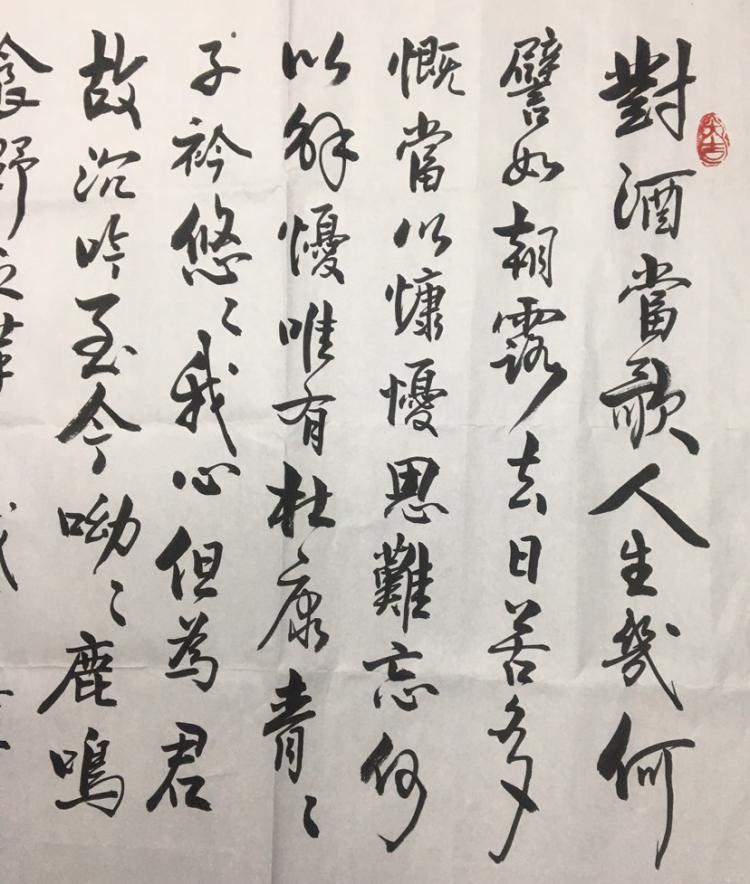 對酒當歌人生幾何
譬如朝露去日苦多
慨當以慷懮思難忘何
以解懮唯有杜康青〻
子衿悠〻我心但為君
故沉吟至今呦〻鹿鳴
食野之苹